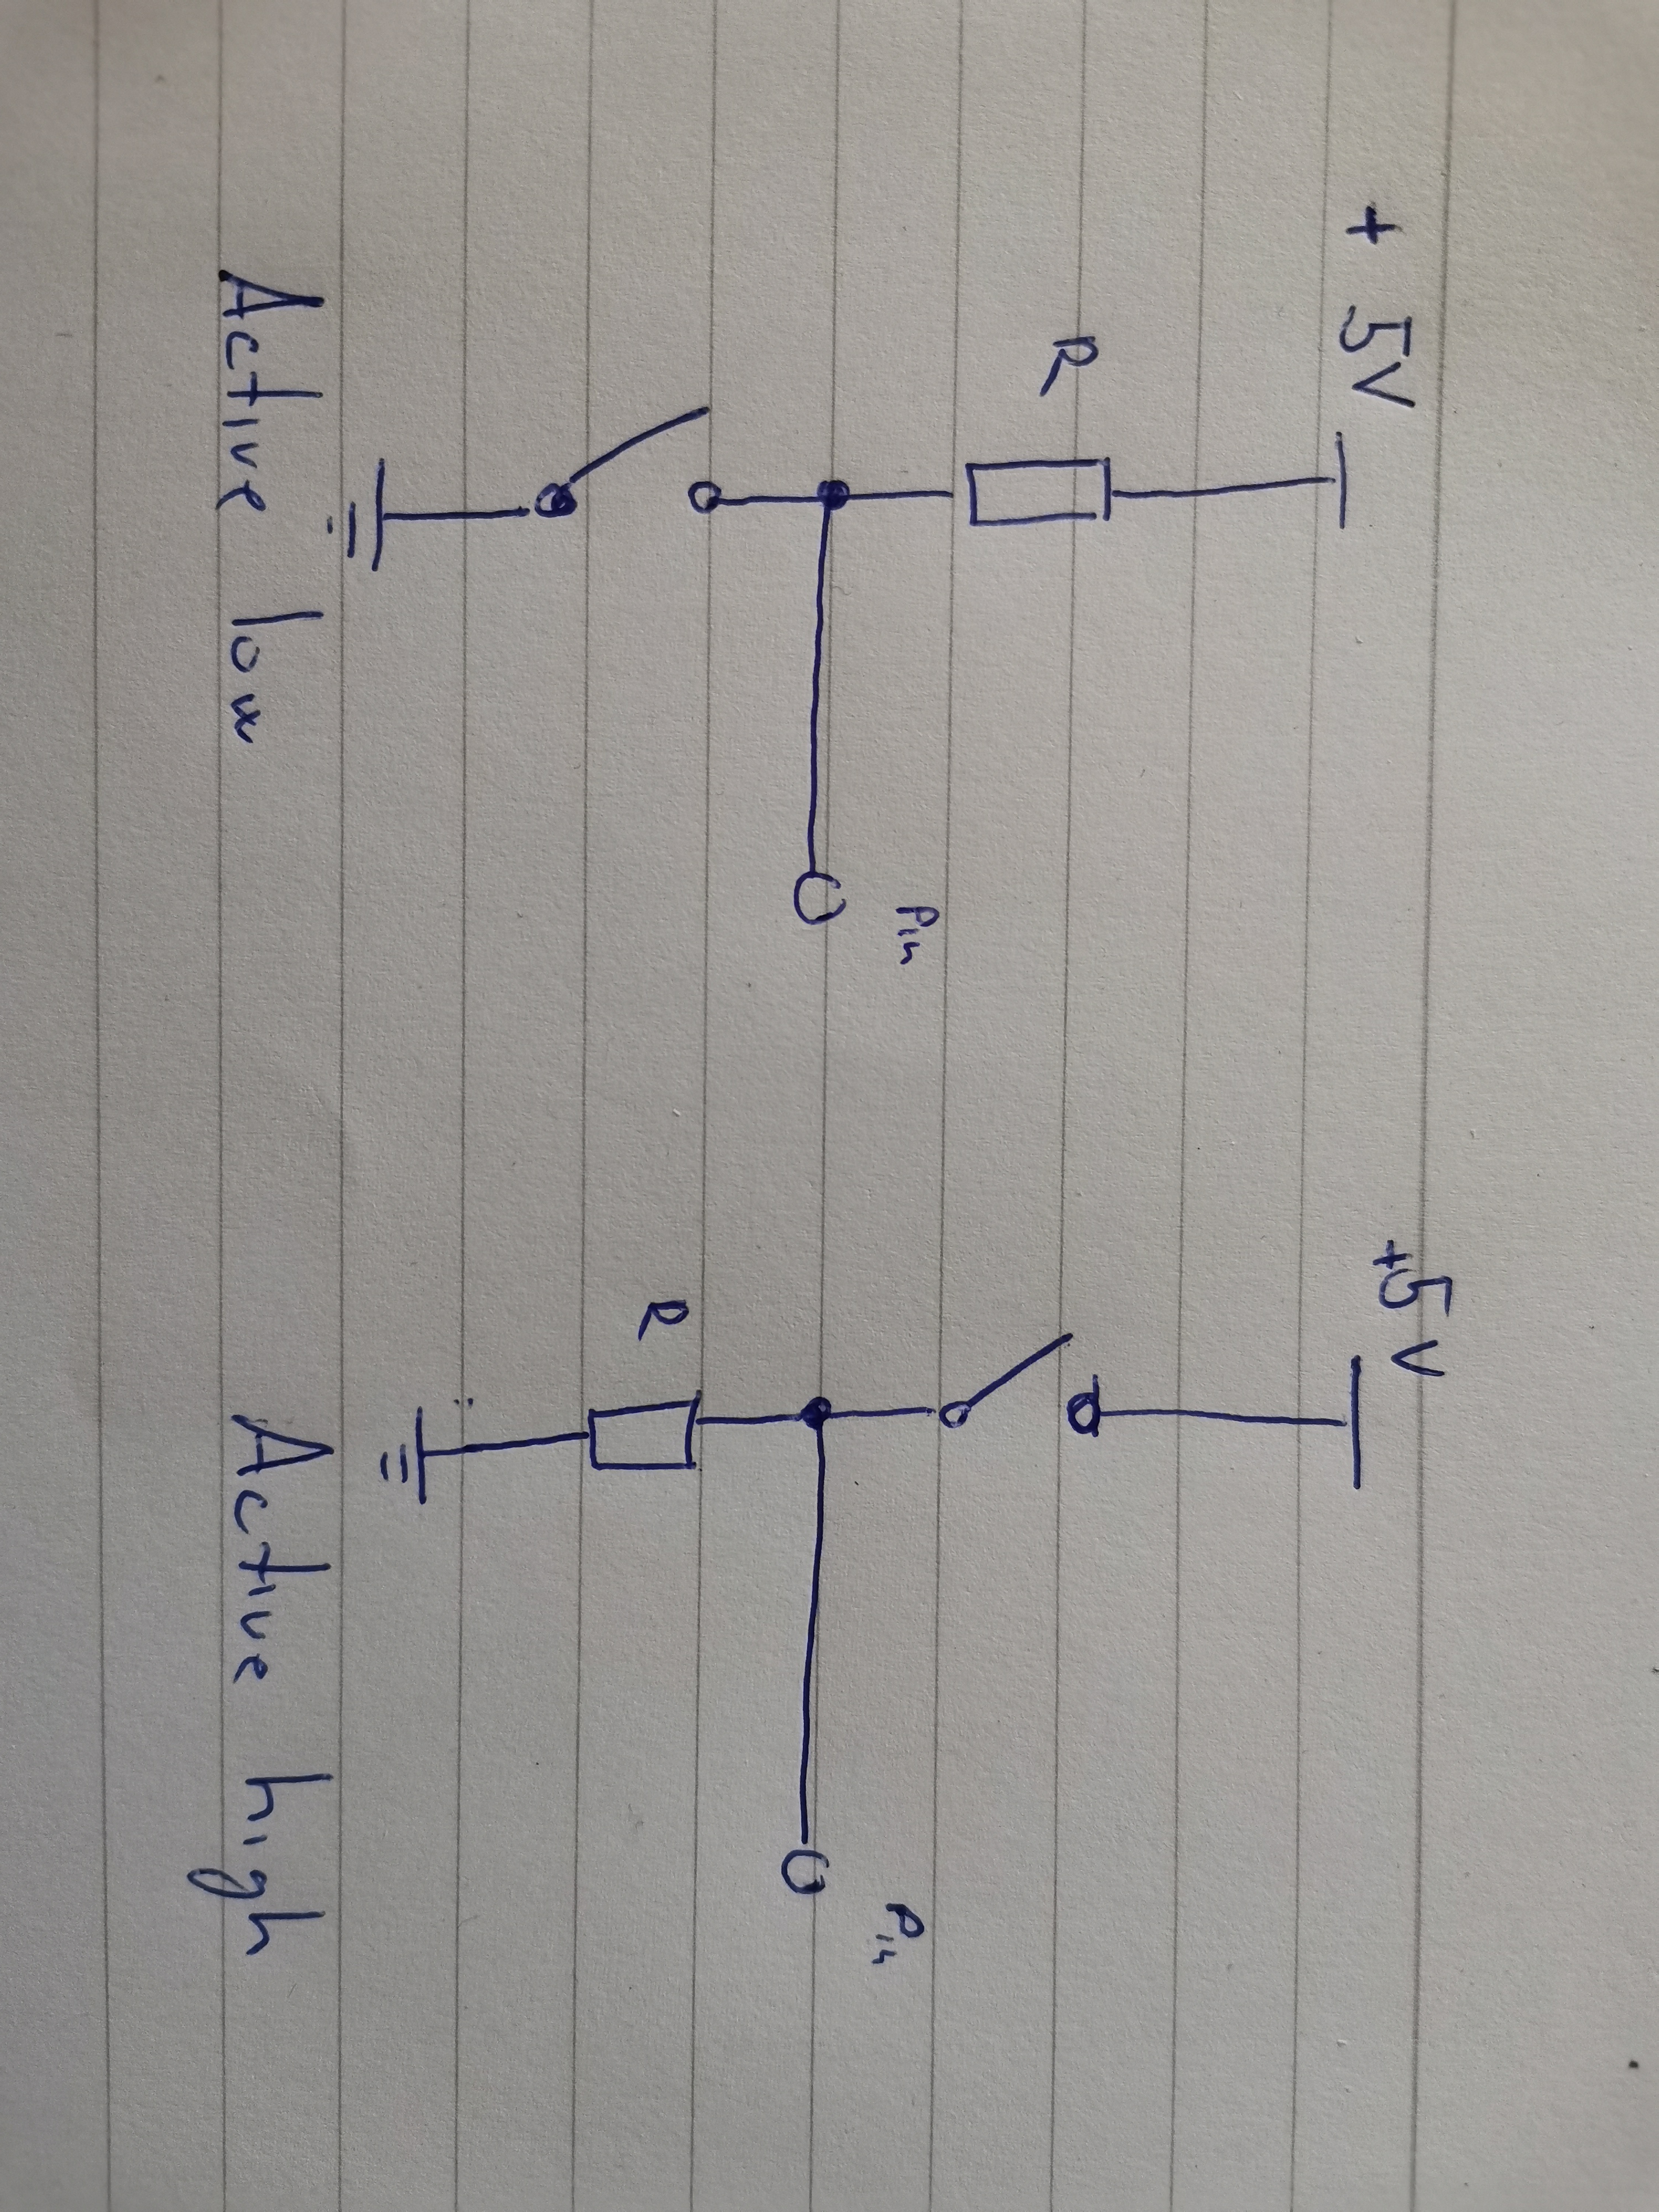 + 5V
R
Pin
Active low
+5V
Pin
R
Active high